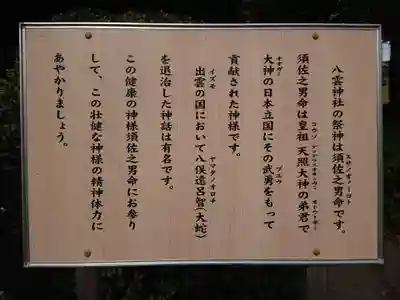 スサノオノミコト
八雲神社の祭神は須佐之男命です。
コウソ
須佐之男命は皇祖 天照大神の弟君で
ブユウ
大神の日本立国にその武勇をもって
貢献された神様です。
イズモ ヤマタノオロチ
出雲の国において八俣遠呂智(大蛇)
を退治した神話は有名です。
この健康の神様須佐之男命にお参り
して、この壮健な神様の精神体力に
あやかりましょう。